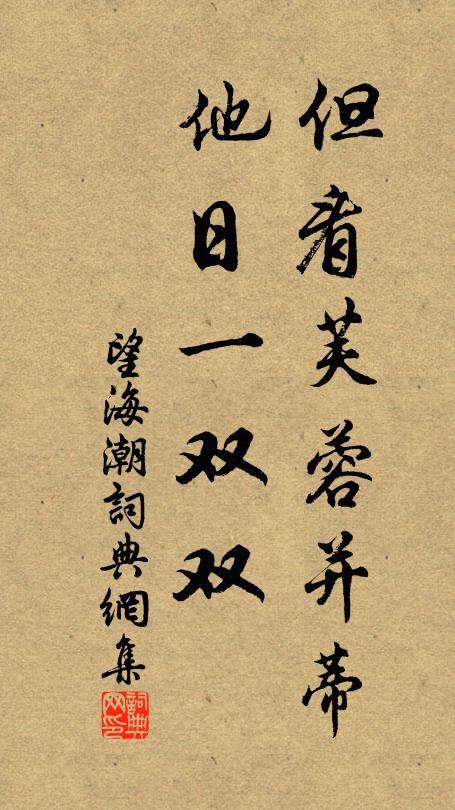 但看芙蓉并蒂
他日一双双
望海潮詞典網集
詞典网印